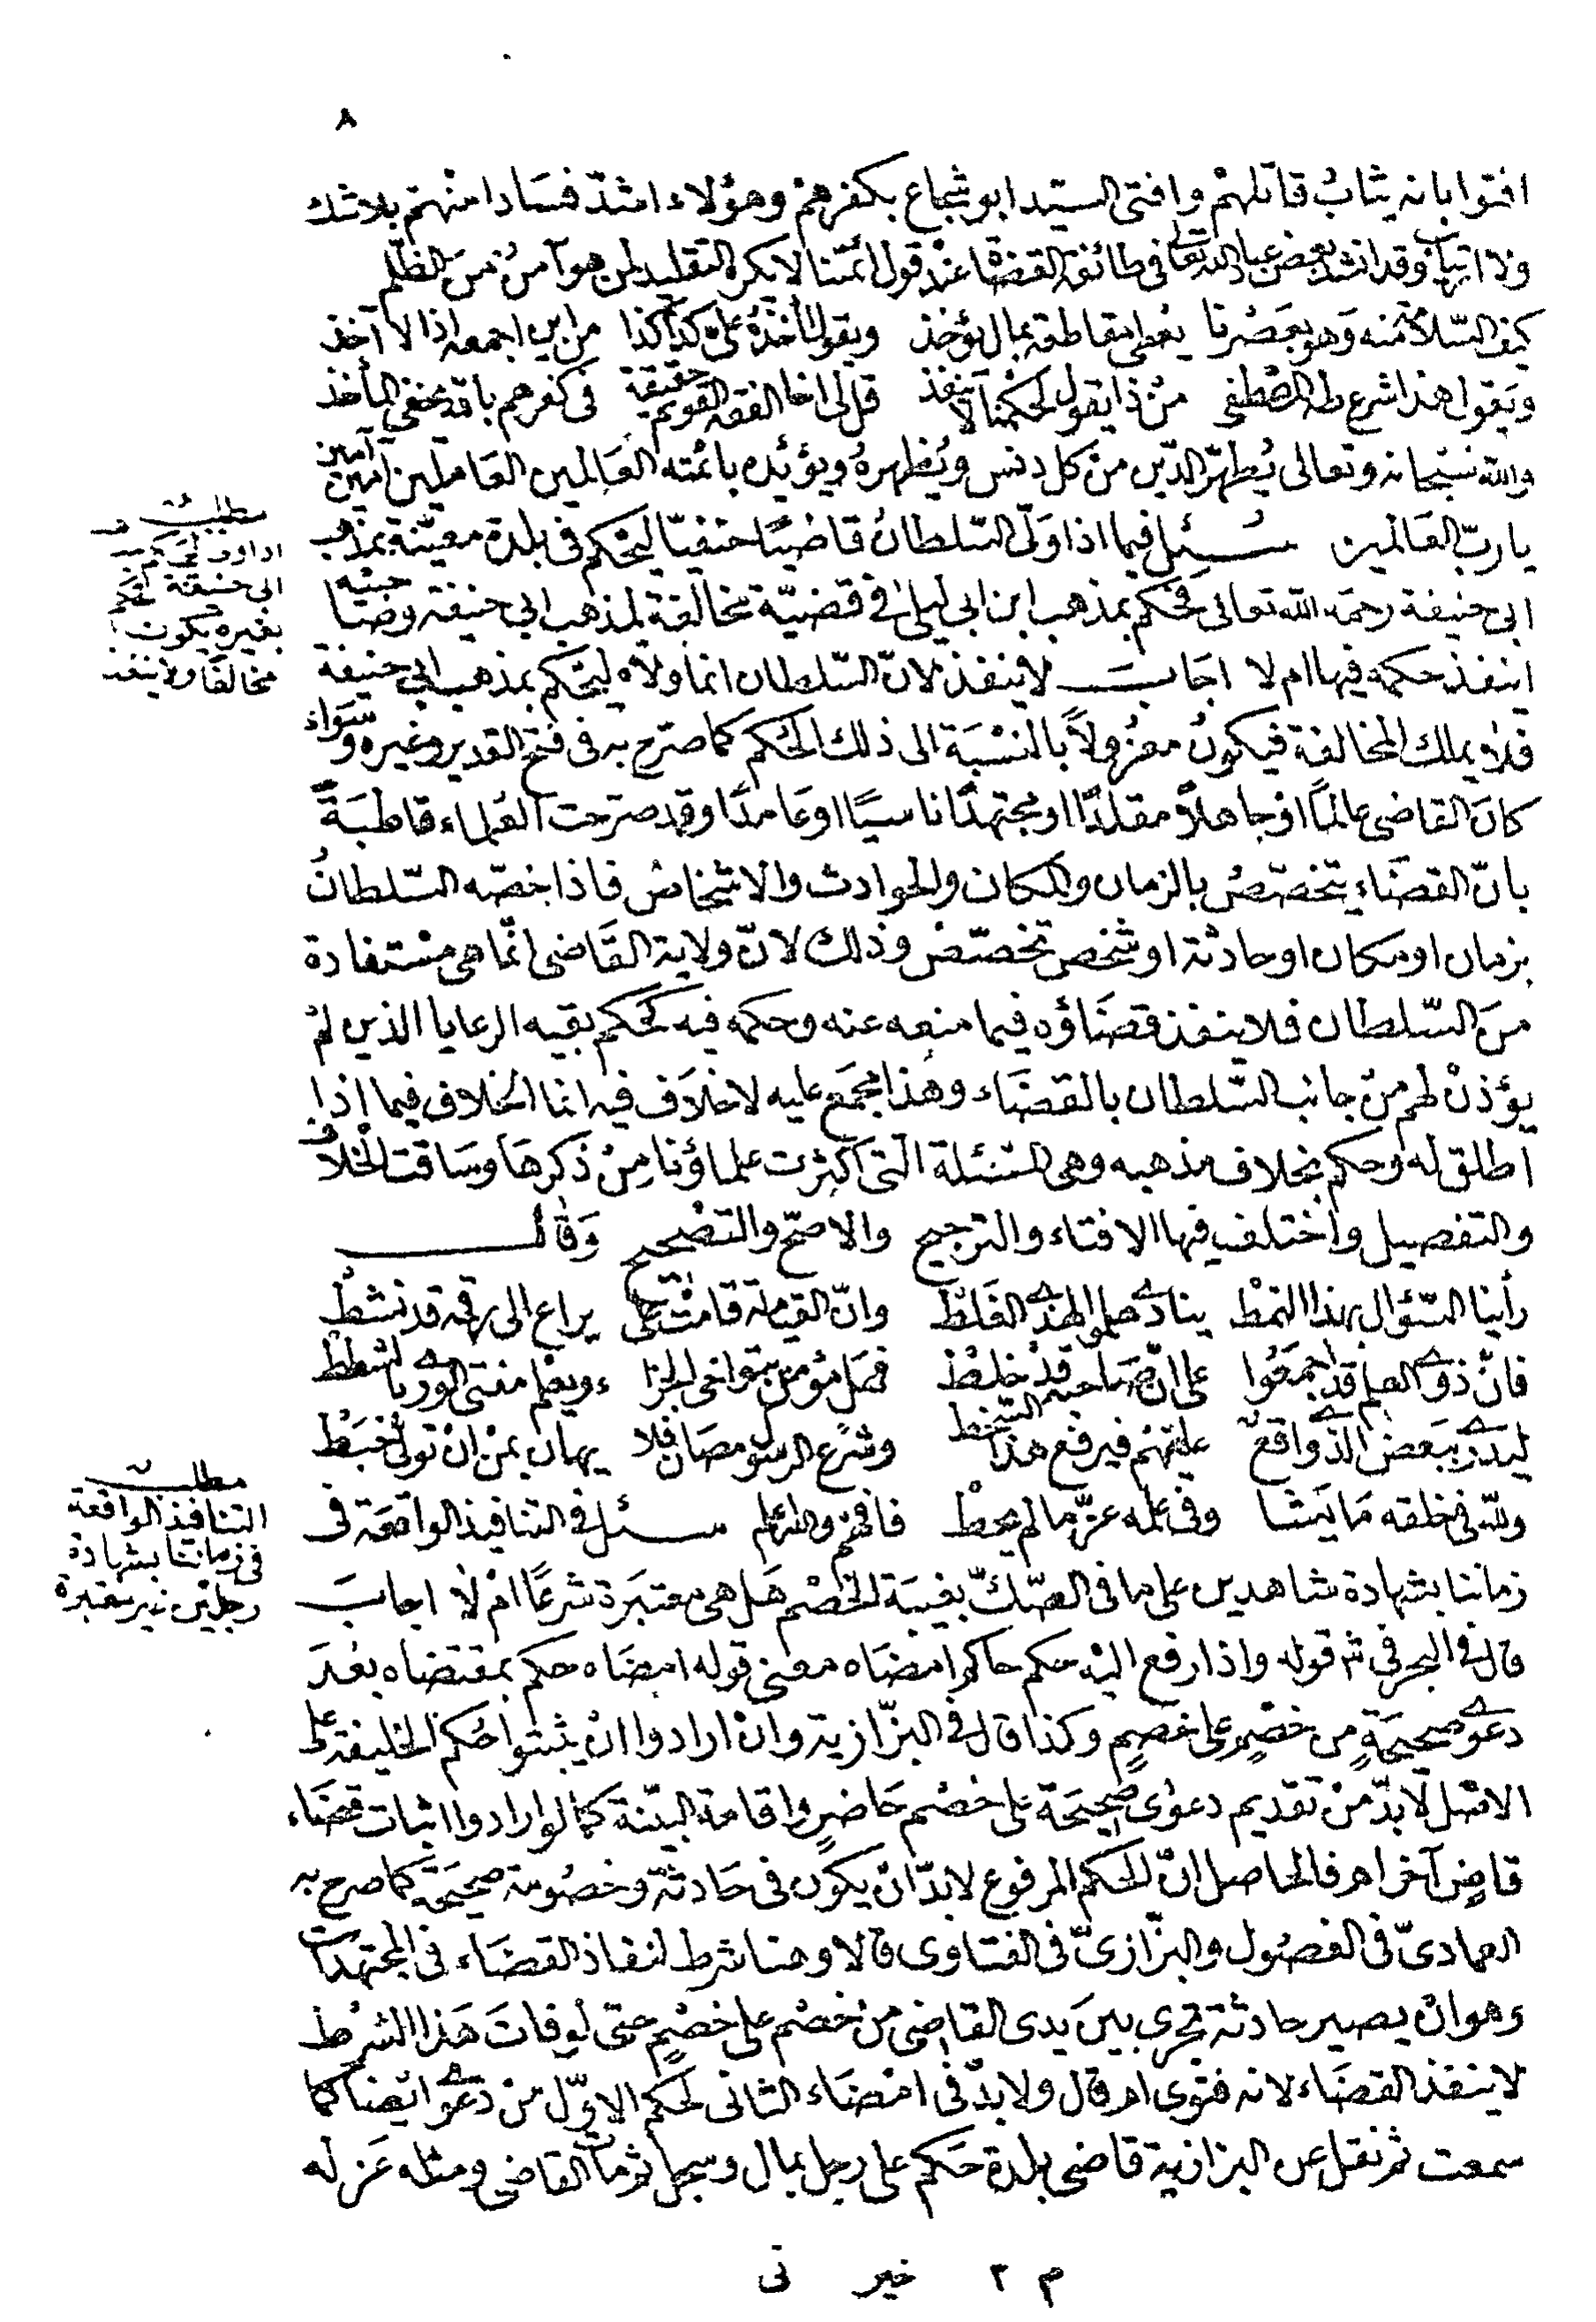 ٨
افتوا بانه يثاب قاتلهم وافتى السيد ابو شجاع بكفرهم وهؤلاء اشد فسادا منهم بلا شك
ولا ارتياب وقد انشد بعض عباد الله تعالى في طائفة القضاة عند قول ائمتنا لا يكره التقليد لمن هو آمن من الظلم
كيف السلامة منه وهو بعصرنا يعطى مقاطعة بمال يؤخذ ويقول آخذه على كذا كذا من اين اجمعه اذا لا آخذ
ويقول هذا شرع طه المصطفى من ذا يقول لحكمنا لا ينفذ قل لى اخا الفقه القويم حقيقة فى كفرهم باقد يخفى المأخذ
والله سبحانه وتعالى يطهر الدين من كل دنس ويظهره ويؤيده بائمته العالمين العاملين امين آمين
يا رب العالمين سئل فيما اذا ولى السلطان قاضيا حنفيا ليحكم فى بلدة معينة بمذهب
ابى حنيفة رحمه الله تعالى فحكم بمذهب ابن ابى ليلى فى قضية مخالفة لمذهب ابي حنيفة وصاحبيه
اينفذ حكمه فيها ام لا اجاب لا ينفذ لان السلطان انما ولاه ليحكم بمذهب ابي حنيفة
فلا يملك المخالفة فيكون معزولا بالنسبة الى ذلك الحكم كما صرح به فى فتح القدير وغيره وسواء
كان القاضى عالما او جاهلا مقلدا او مجتهدا ناسيا او عامدا وقد صرحت العلماء قاطبة
بان القضاء يتخصص بالزمان والمكان والحوادث والاشخاص فاذا خصه السلطان
بزمان او مكان او حادثة او شخص تخصص وذلك لان ولاية القاضى انما هى مستفادة
من السلطان فلا ينفذ قضاؤه فيما منعه عنه وحكمه فيه كحكم بقيه الرعايا الذين لم
يؤذن لهم من جانب السلطان بالقضاء وهذا مجمع عليه لا خلاف فيه انما الخلاف فيما اذا
اطلق له وحكم بخلاف مذهبه وهى المسئلة التى اكثرت علماؤنا من ذكرها وساقت الخلاف
والتفصيل واختلف فيها الافتاء والترجيح والاصح والتصحيح وقال
رأينا السؤال بهذا النمط ينادى هلموا لهذى الغلط وان القيامة قامت على يراع الى رقمه قد نشط
فان ذوى العلم قد اجمعوا على ان صاحبه قد خلط فهل مؤمن يتوخى الجزا ء ويعلم مفتى الورى بالشطط
ليدرى ببعض الذى واقع عليهم فيرفع هذا السخط وشرع الرسول مصان فلا يهان بمن ان تولى خبط
ولله فى خلقه ما يشا وفى علمه عز ما لم يحط فافهم والله اعلم سئل فى التنافيذ الواقعة فى
زماننا بشهادة شاهدين على ما فى الصك بغيبة الخصم هل هى معتبرة شرعا ام لا اجاب
قال فى البحر فى شرح قوله واذا رفع اليه حكم حاكم امضاه معنى قوله امضاه حكم بمقتضاه بعد
دعوى صحيحة من خصم على خصم وكذا قال فى البزازية وان ارادوا ان يثبتوا حكم الخليفة على
الاصل لا بد من تقديم دعوى صحيحة على خصم حاضر واقامة البينة كما لو ارادوا اثبات قضاء
قاض آخر اهـ فالحاصل ان الحكم المرفوع لا بد ان يكون فى حادثة وخصومة صحيحة كما صرح به
العمادى فى الفصول والبزازى فى الفتاوى قالا وهنا شرط لنفاذ القضاء فى المجتهدات
وهو ان يصير حادثة تجرى بين يدى القاضى من خصم على خصم حتى لو فات هذا الشرط
لا ينفذ القضاء لانه فتوى اهـ قال ولا بد فى امضاء الثانى لحكم الاول من دعوى ايضا كما
سمعت ثم نقل عن البزازية قاضى بلدة حكم على رجل بمال وسجل ثم مات القاضى ومثله عزله
م ٢ خير نى
مطلب
ابى حنيفة فحكم
بغيره يكون
مخالفا ولا ينفذ
مطلب
التنافيذ الواقعة
فى زماننا بشهادة
رجلين غير معتبرة